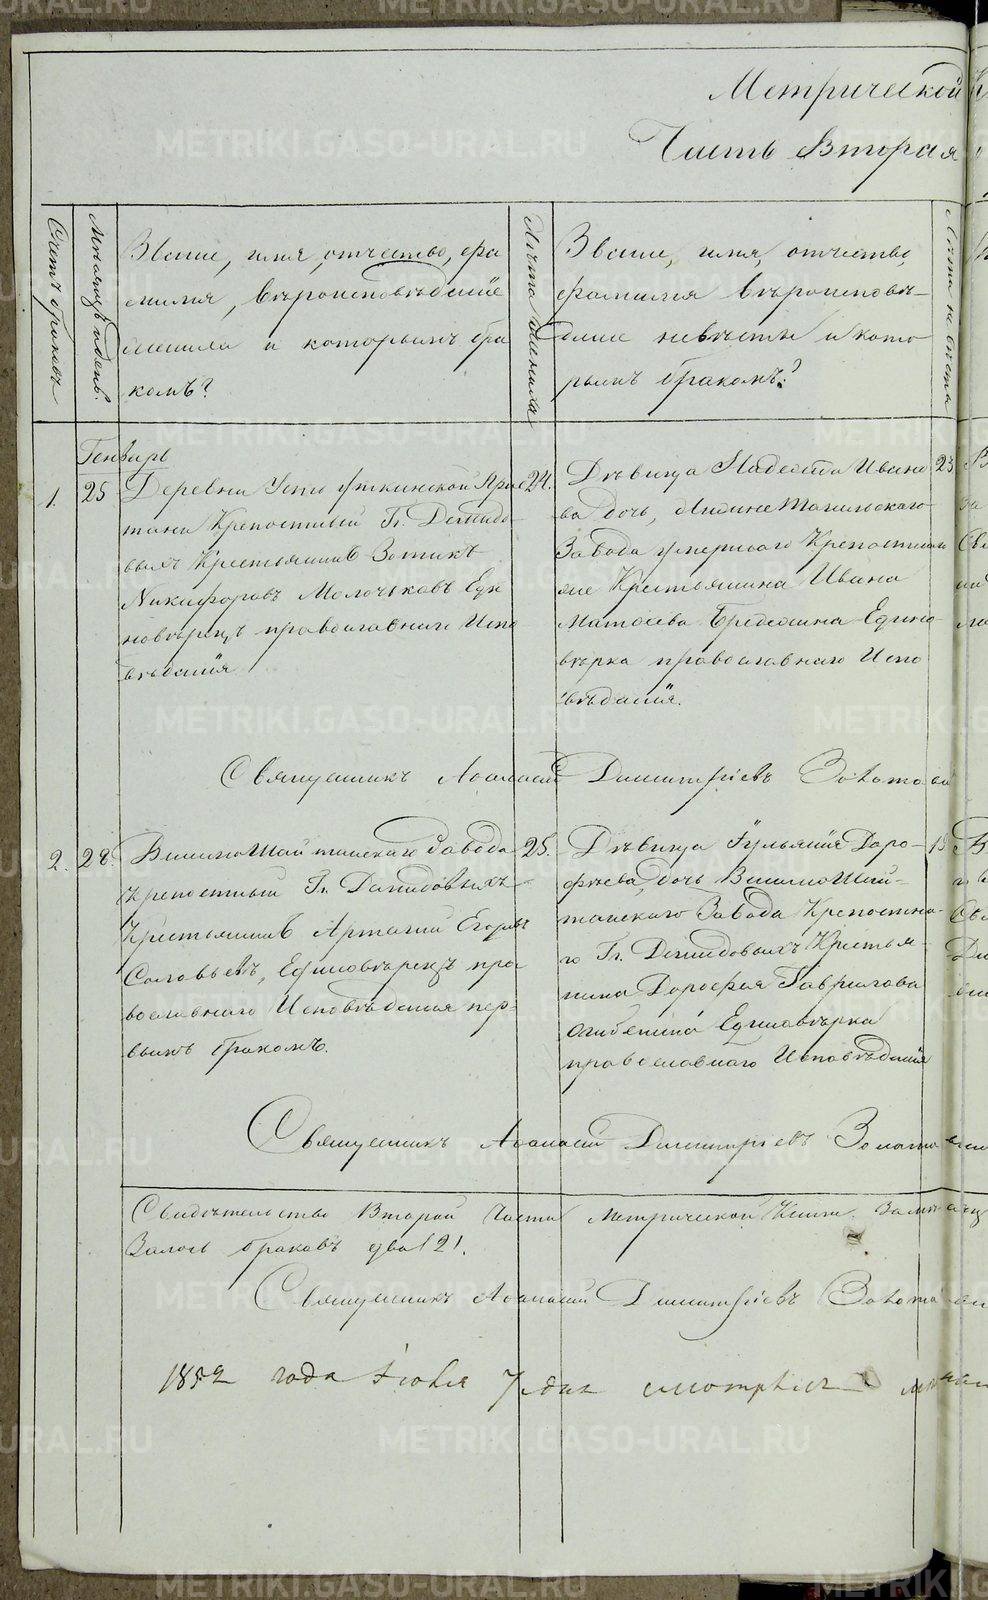 Метрической
Часть Вторая
Счетъ браковъ
Мѣсяцъ и день.
Званіе, имя, отчество, фа
милія, вѣроисповѣданіе
жениха и которымъ бра
комъ?
Лѣта жениха
Званіе, имя, отчество,
фамилія вѣроисповѣ-
даніе невѣсты и кото
рымъ бракомъ?
Лѣта невѣсты
Генварь
1. 25
Деревни Усть Уткинской При
стани Крепостный Гг. Демидо
выхъ Крестьянинъ Зотикъ
Никифоровъ Молочковъ Еди
новѣрецъ православнаго Испо
вѣданія
24.
Дѣвица Надежда Ивано
ва дочь, Нижне Тагильскаго
Завода умершаго Крепостнаго
Крестьянина Ивана
Матвѣева Единo-
вѣрка православнаго Испо
вѣданія.
23
Священникъ Аѳанасій Димитріевъ
2. 28.
Висимо Шайтанскаго Завода
Крепостный Гг. Демидовыхъ
Крестьянинъ Егоровъ
Соловьевъ, Единовѣрецъ пра
вославнаго Исповѣданія пер-
вымъ бракомъ.
25.
Дѣвица Іульянія Доро-
фѣева, дочь Висимо Шай-
танскаго Завода Крепостна-
го Гг. Демидовыхъ Крестья-
нина Дорофея Гаврилова
Единовѣрка
православнаго Исповѣданія
Священникъ Аѳанасій Димитріевъ
Свидѣтельство Второй Части Метрической Книги
браковъ два (2).
Священникъ Аѳанасій Димитріевъ
1852 года Іюля 7 дня смотрѣлъ
METRIKI.GASO-URAL.RU